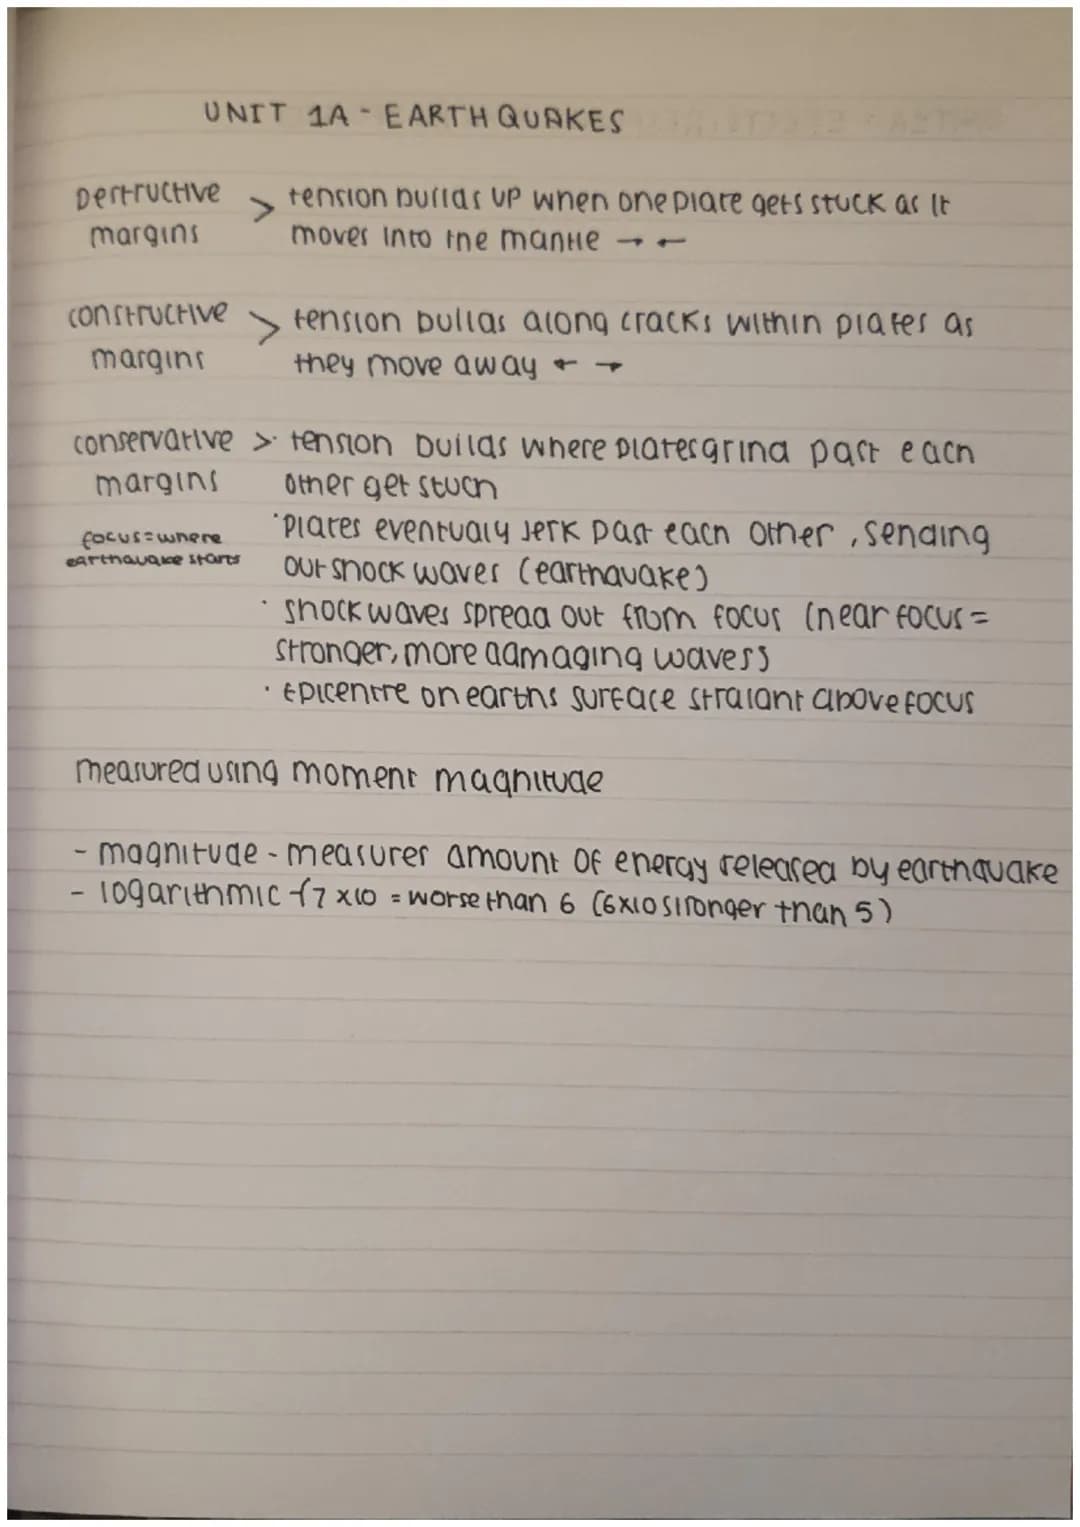 UNIT 1A - EARTHQUAKES
Destructive > tension builds up when one plate gets stuck as it
margins moves into the mantle → ←
constructive > tension builds along cracks within plates as
margins they move away ← →
conservative > tension builds where plates grind past each
margins other get stuch
focus = where
earthquake starts
· Plates eventualy jerk past each other, sending
out shock waves (earthquake)
· shock waves spread out from focus (near focus =
stronger, more damaging waves)
· Epicentre on earths surface straight above focus
measured using moment magnitude
- magnitude - measures amount of energy released by earthquake
- logarithmic 7 x10 = worse than 6 (6x10 stronger than 5)